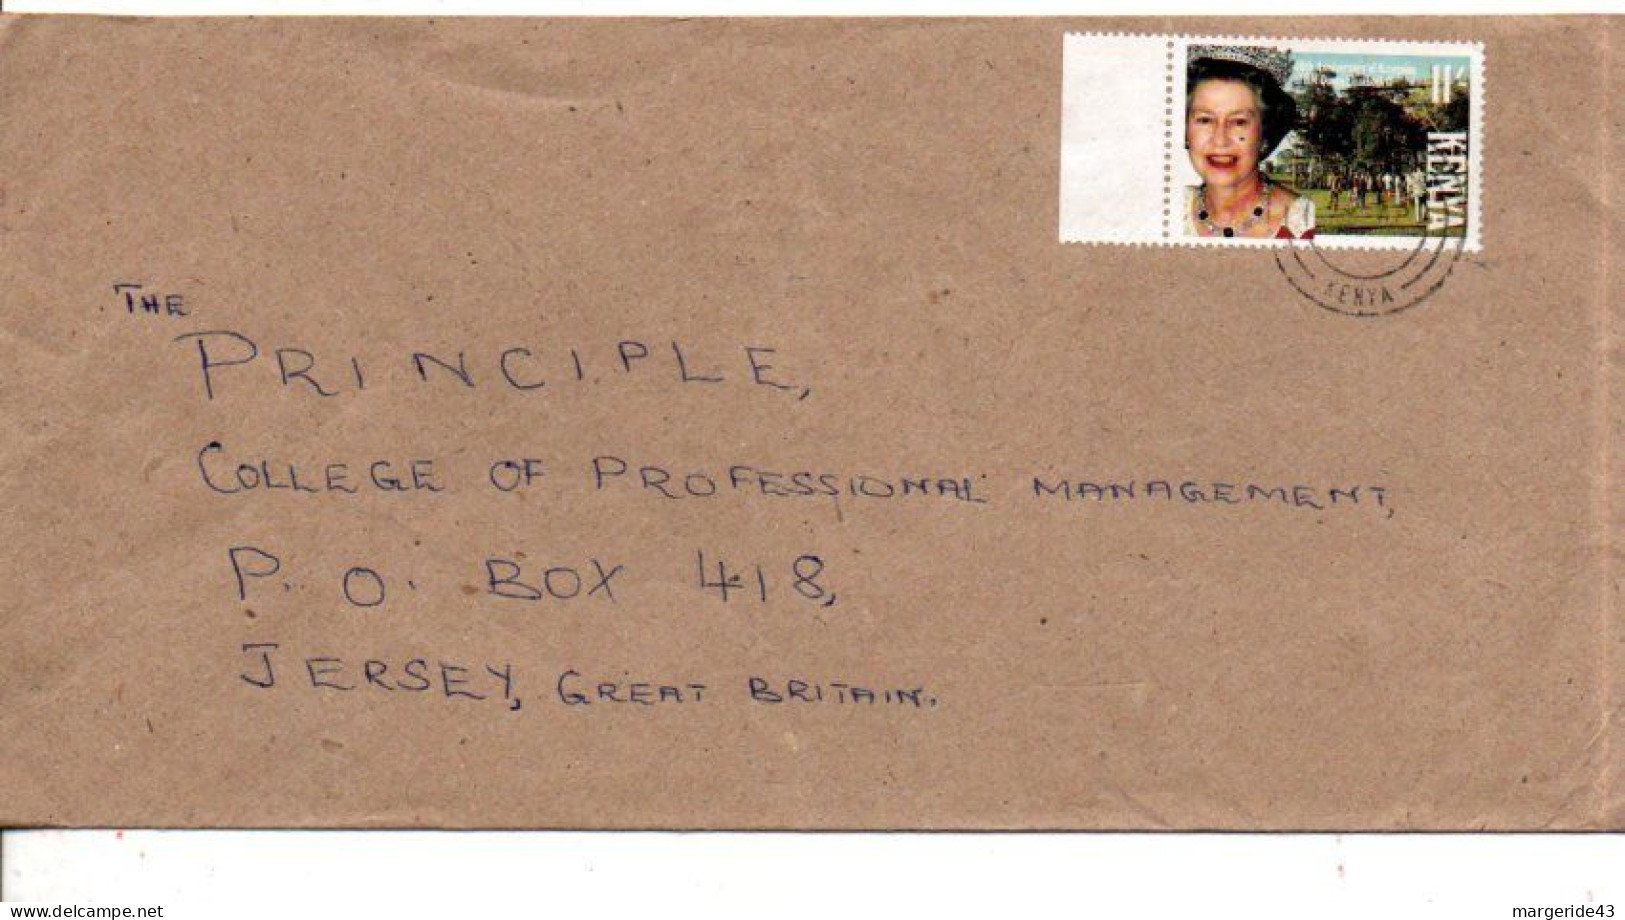 11/-
KENYA
KENYA
THE
PRINCIPLE,
COLLEGE OF PROFESSIONAL MANAGEMENT,
P. O. BOX 418,
JERSEY, GREAT BRITAIN.
www.delcampe.net
margeride43